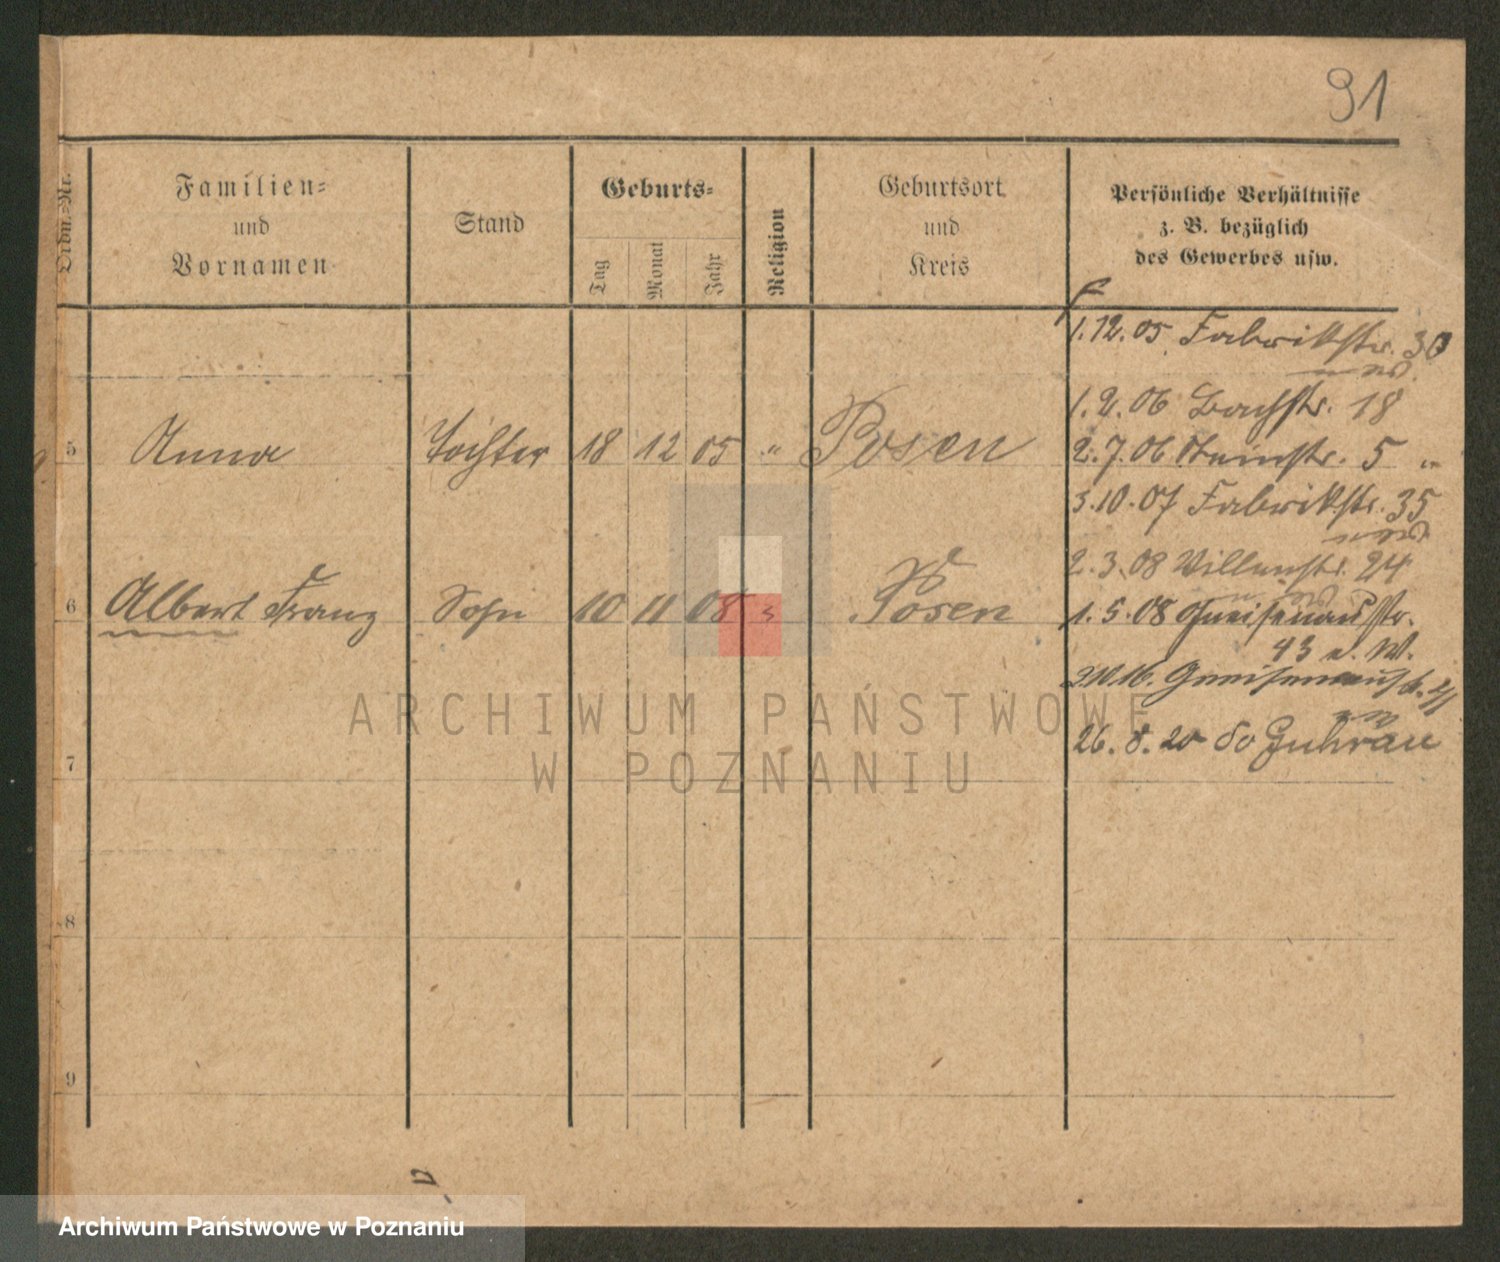 91
Ordn.-Nr.
Familien-
und
Vornamen
Stand
Geburts-
Tag
Monat
Jahr
Religion
Geburtsort
und
Kreis
Persönliche Verhältnisse
z. B. bezüglich
des Gewerbes usw.
1.12.05 Fabrikstr. 30
1.2.06 Bachstr. 18
5 Anna Tochter 18 12 05 " Posen
2.7.06 Steinstr. 5
3.10.07 Fabrikstr. 35
2.3.08 Villenstr. 24
6 Albert Franz Sohn 10 11 08 Posen
1.5.08 Gneisenaustr.
43 n. W.
2.10.16. Gneisenaustr.
26.8.20 Guhrau
7
8
9
ARCHIWUM PAŃSTWOWE
W POZNANIU
Archiwum Państwowe w Poznaniu